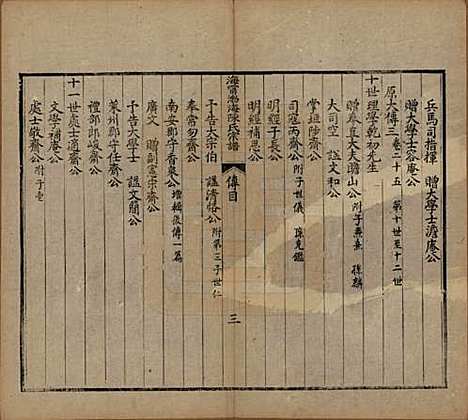 兵馬司指揮 贈大學士澹庵公
贈大學士容庵公
原大傳三 卷二十五 第十世至十二世
十世理學乾初先生
贈奉直大夫贍山公 附子熹熹 孫麟
大司空 諡文和公
掌垣陟齋公
司寇丙齋公 附子世儀 孫克鑑
明經子長公
明經補思公
海寧渤海陳氏宗譜
傳目
三
予告大宗伯 諡清恪公 附第三子世仁
奉常勿齋公
南安郡守香泉公 增輯後傳一篇
廣文 贈副憲宗齋公
予告大學士 諡文簡公
萊州郡守任齋公
禮部郎岐齋公
十一世中丞適齋公
文學補庵公
處士敬齋公 附子